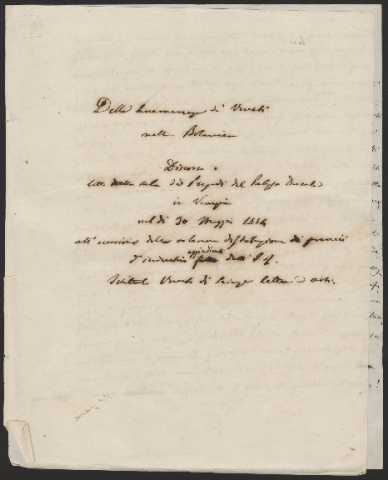 Delle benemerenze de' Veneti
nella Botanica
Discorso
letto nella sala dei Pregadi del Palazzo Ducale
in Venezia
nel dì 30 Maggio 1854
all' occasione della solenne distribuzione di premii
d'industria aggiudicati dall' I. R.
Istituto Veneto di Scienze lettere ed arti.